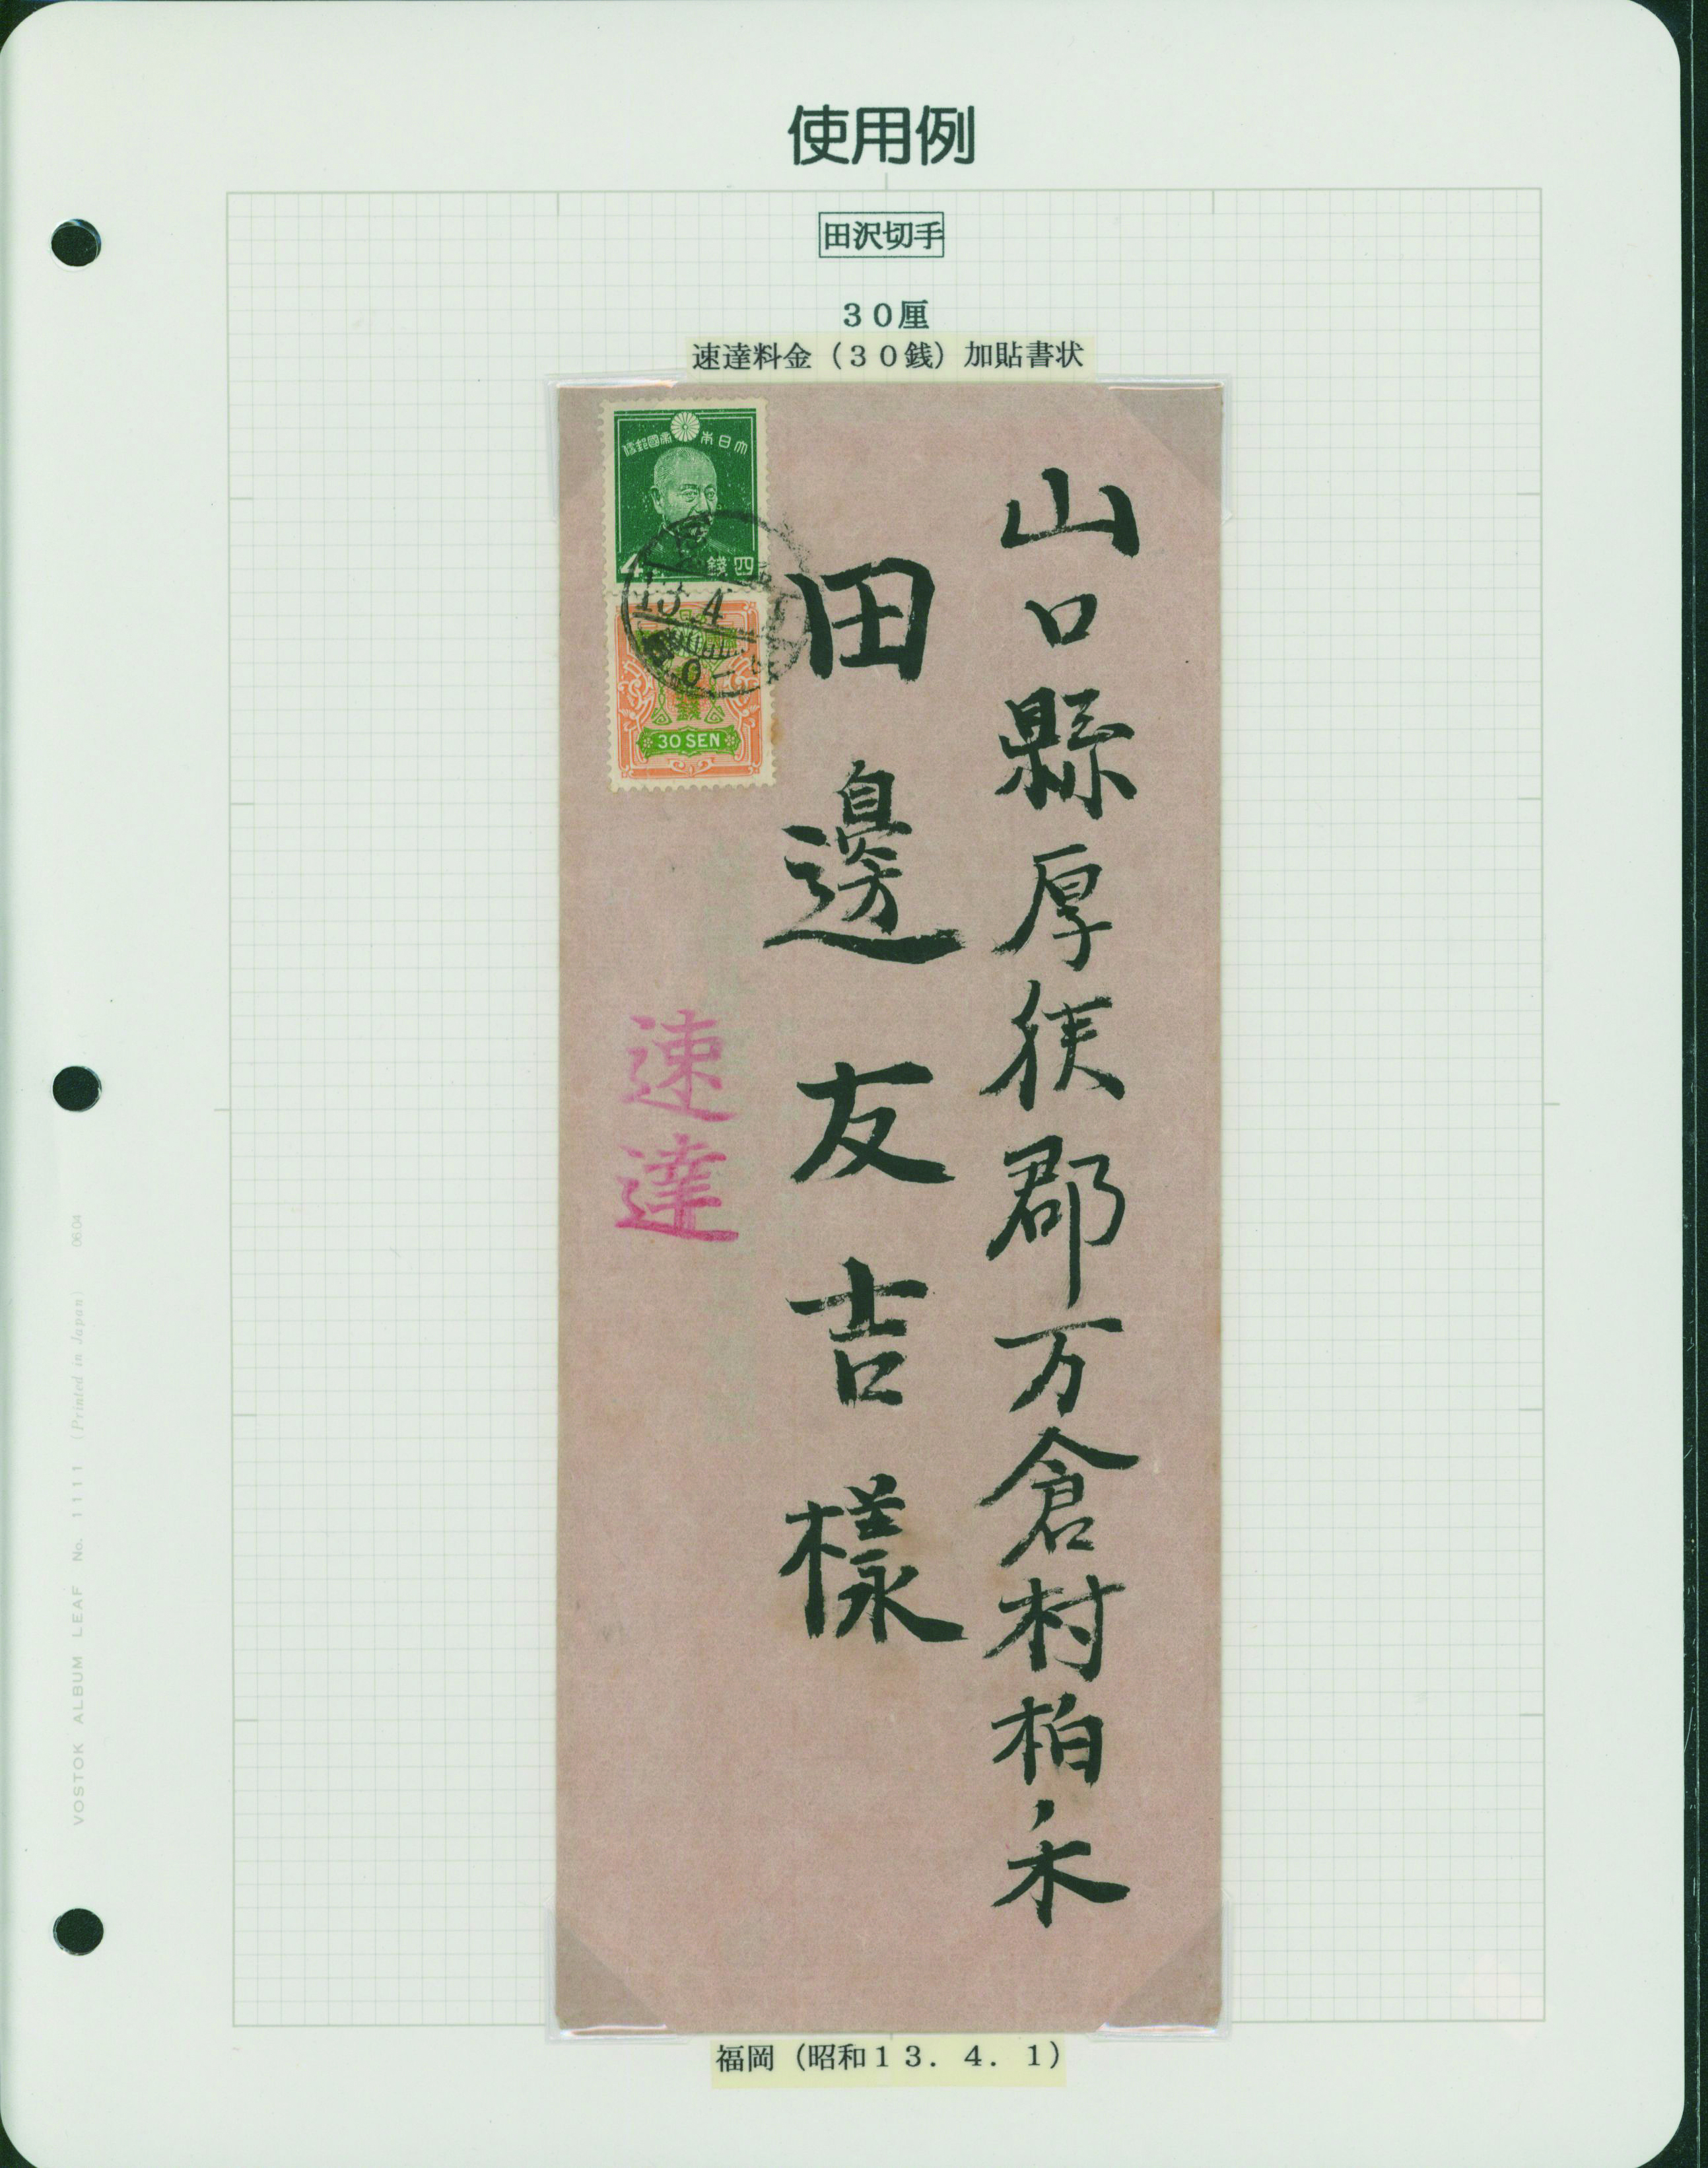 使用例
田沢切手
30厘
速達料金(30銭)加貼書状
大日本帝國郵便
4 四錢
13.4
30 SEN
山口縣厚狭郡万倉村柏ノ木
田邊友吉樣
速達
福岡(昭和13.4.1)
VOSTOK ALBUM LEAF No. 1111 (Printed in Japan) 0604